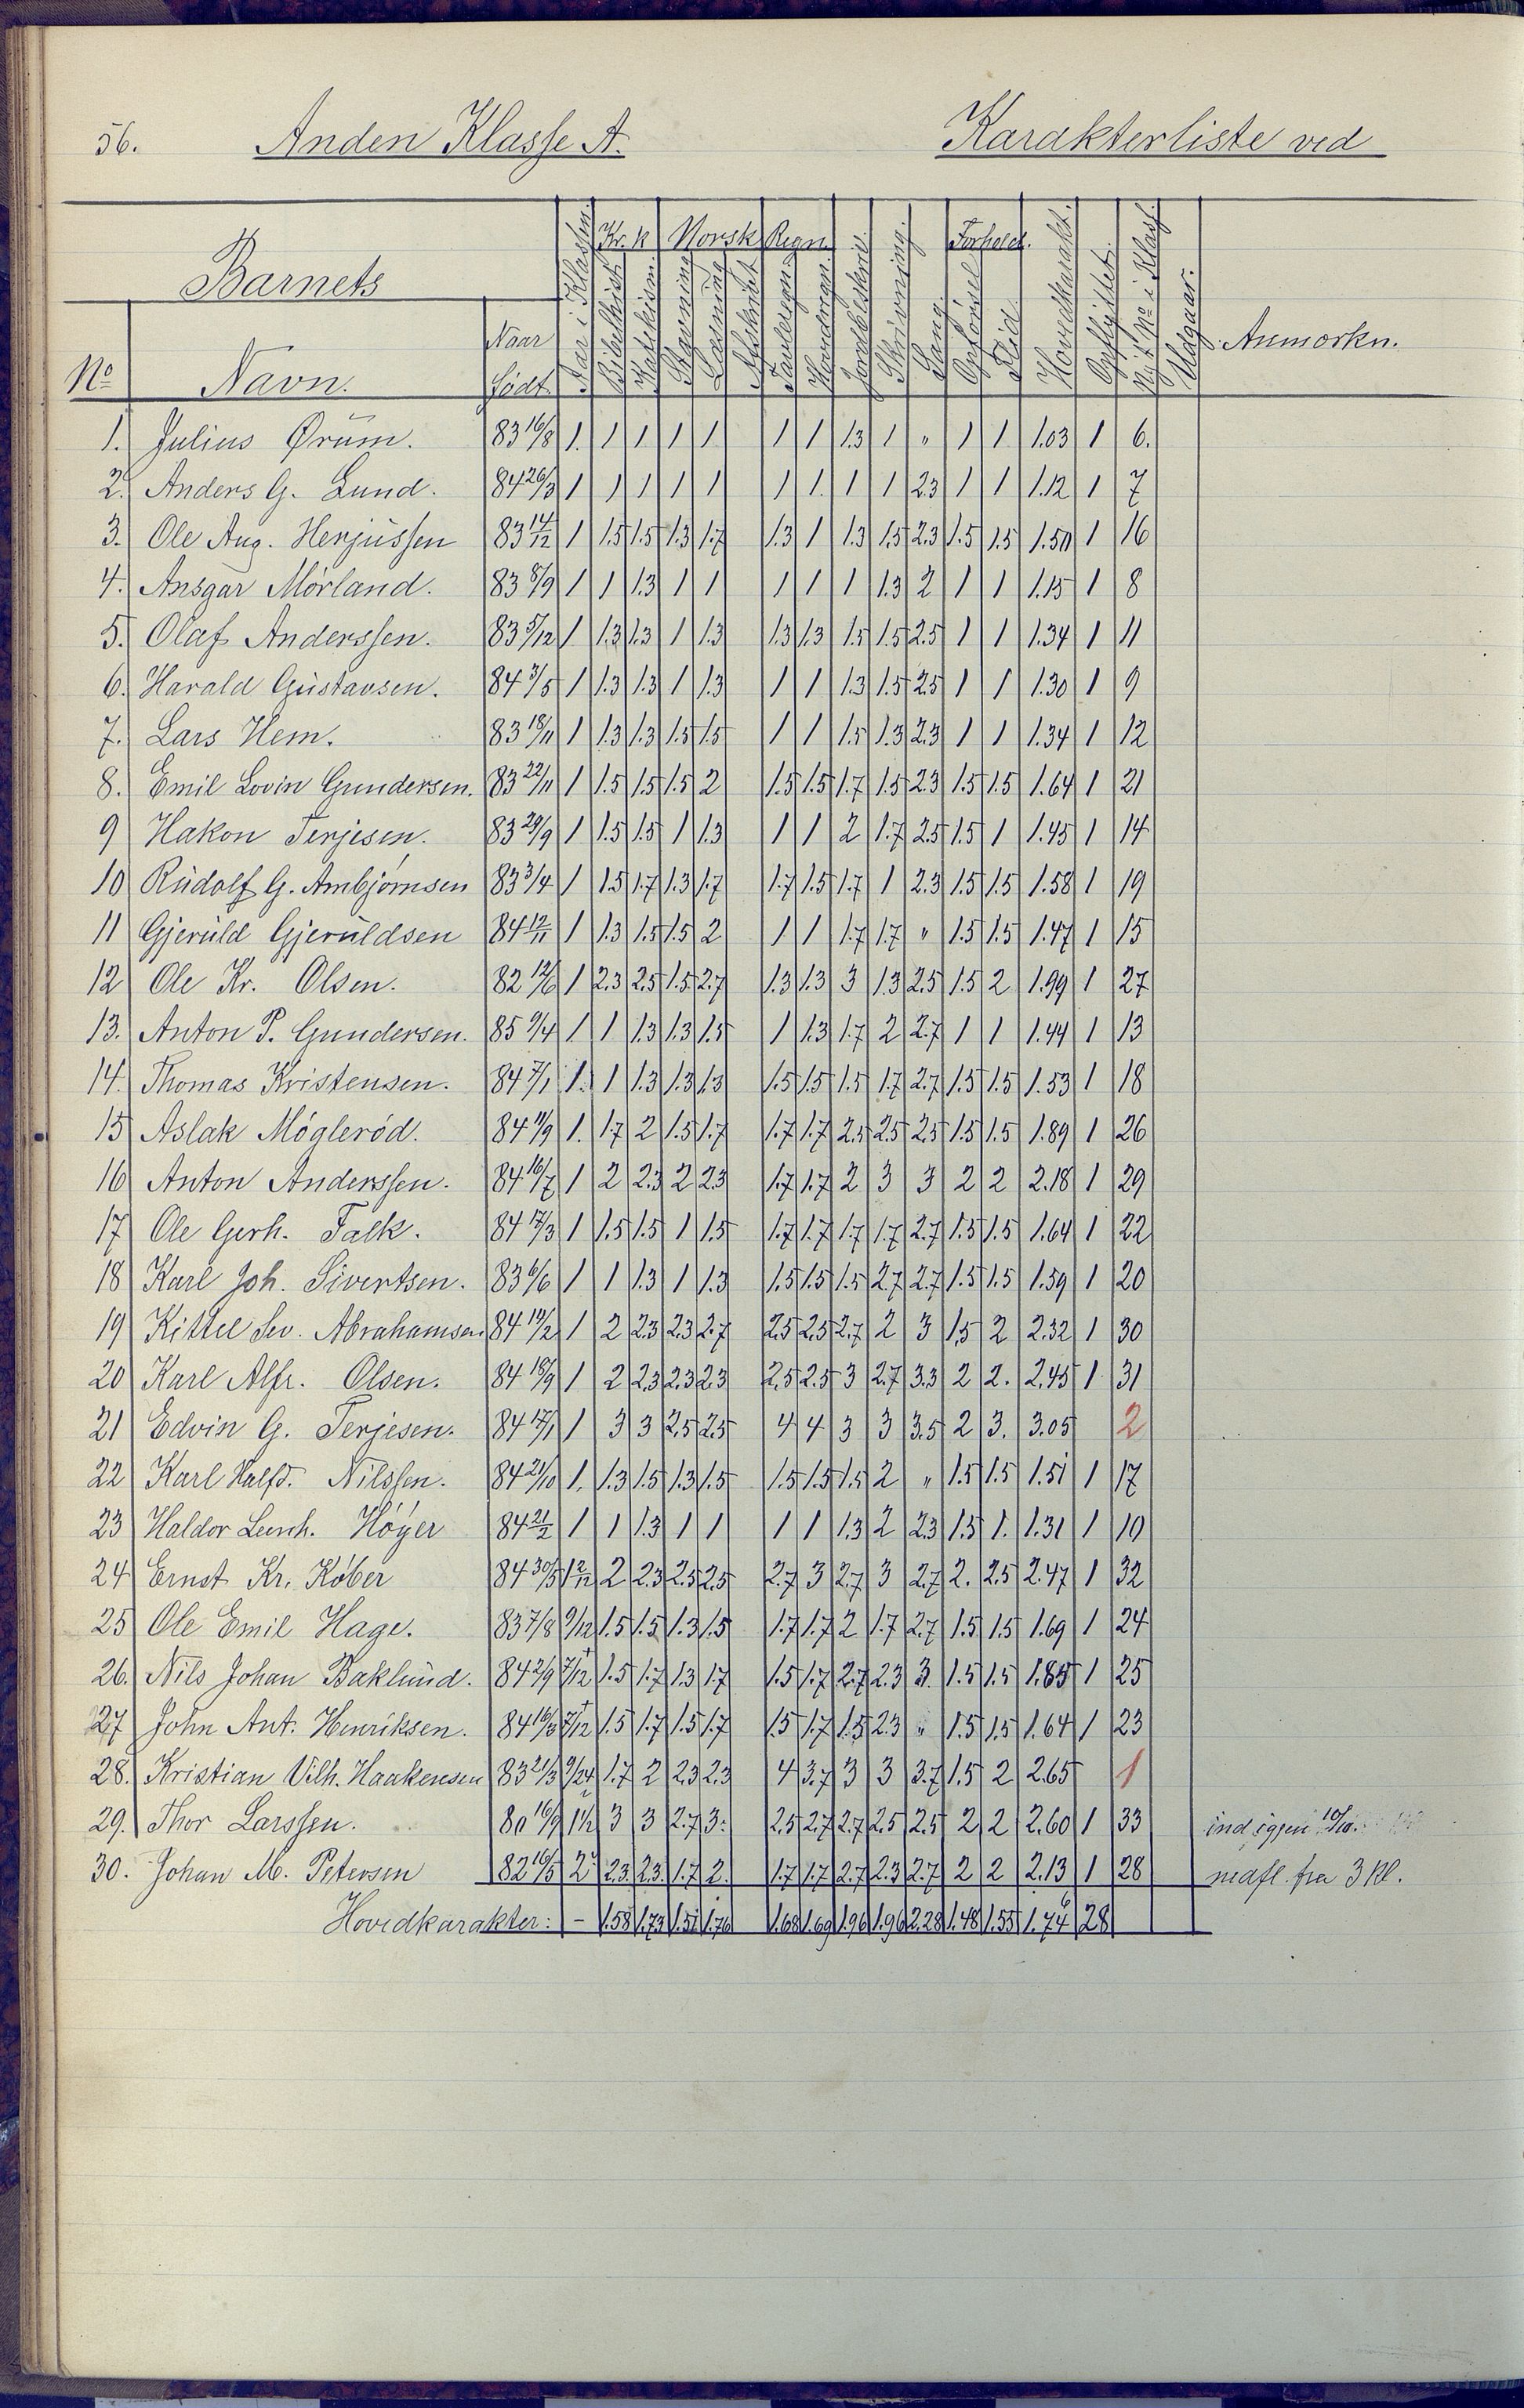 56. Anden Klasse A. Karakterliste ved
Kr. k Norsk Regn. Forhold.
Barnets
Aar i Klassen. Bibelhist. Katekism. Stavning Læsning Afskrivt Tavleregn. Hovedregn. Jordbeskriv. Skrivning. Sang. Opførsel Flid. Hovedkarakt. Opflyttet. Nyt No i Klas. Udgaar.
No Navn. Naar født. Anmærkn.
1. Julius Ørum. 83 16/8 1. 1 1 1 1 1 1 1.3 1 " 1 1 1.03 1 6.
2. Anders G. Lund. 84 26/3 1 1 1 1 1 1 1. 1 1 2.3 1 1 1.12 1 7
3. Ole Aug. Herjussen 83 14/12 1 1.5 1.5 1.3 1.7 1.3 1 1.3 1.5 2.3 1.5 1.5 1.50 1 16
4. Ansgar Mørland. 83 8/9 1 1 1.3 1 1 1 1 1 1.3 2 1 1 1.15 1 8
5. Olaf Anderssen. 83 5/12 1 1.3 1.3 1 1.3 1.3 1.3 1.5 1.5 2.5 1 1 1.34 1 11
6. Harald Gustavsen. 84 3/5 1 1.3 1.3 1 1.3 1 1 1.3 1.5 2.5 1 1 1.30 1 9
7. Lars Hem. 83 18/11 1 1.3 1.3 1.5 1.5 1 1 1.5 1.3 2.3 1 1 1.34 1 12
8. Emil Lovin Gundersen. 83 22/11 1 1.5 1.5 1.5 2 1.5 1.5 1.7 1.5 2.3 1.5 1.5 1.64 1 21
9 Hakon Terjesen. 83 29/9 1 1.5 1.5 1 1.3 1 1 2 1.7 2.5 1.5 1 1.45 1 14
10 Rudolf G. Ambjørnsen 83 3/4 1 1.5 1.7 1.3 1.7 1.7 1.5 1.7 1 2.3 1.5 1.5 1.58 1 19
11 Gjeruld Gjeruldsen 84 12/11 1 1.3 1.5 1.5 2 1 1 1.7 1.7 " 1.5 1.5 1.47 1 15
12 Ole Kr. Olsen. 82 12/6 1 2.3 2.5 1.5 2.7 1.3 1.3 3 1.3 2.5 1.5 2 1.99 1 27
13. Anton P. Gundersen. 85 9/4 1. 1 1.3 1.3 1.5 1 1.3 1.7 2 2.7 1 1 1.44 1 13
14. Thomas Kristensen. 84 7/1 1. 1 1.3 1.3 1.3 1.5 1.5 1.5 1.7 2.7 1.5 1.5 1.53 1 18
15 Aslak Møglerød. 84 11/9 1. 1.7 2 1.5 1.7 1.7 1.7 2.5 2.5 2.5 1.5 1.5 1.89 1 26
16 Anton Anderssen. 84 16/7 1 2 2.3 2 2.3 1.7 1.7 2 3 3 2 2 2.18 1 29
17 Ole Gerh. Falk. 84 17/3 1 1.5 1.5 1 1.5 1.7 1.7 1.7 1.7 2.7 1.5 1.5 1.64 1 22
18 Karl Joh. Sivertsen. 83 6/6 1 1 1.3 1 1.3 1.5 1.5 1.5 2.7 2.7 1.5 1.5 1.59 1 20
19 Kittel Sev. Abrahamsen 84 19/2 1 2 2.3 2.3 2.7 2.5 2.5 2.7 2 3 1.5 2 2.32 1 30
20 Karl Alfr. Olsen. 84 18/9 1 2 2.3 2.3 2.3 2.5 2.5 3 2.7 3.3 2 2. 2.45 1 31
21 Edvin G. Terjesen. 84 17/1 1 3 3 2.5 2.5 4 4 3 3 3.5 2 3. 3.05 2
22 Karl Halfd. Nilssen. 84 21/10 1. 1.3 1.5 1.3 1.5 1.5 1.5 1.5 2 " 1.5 1.5 1.51 1 17
23 Haldor Høyer 84 21/2 1 1 1.3 1 1 1 1 1.3 2 2.3 1.5 1. 1.31 1 10
24 Ernst Kr. Køber 84 30/5 1 2/12 2 2.3 2.5 2.5 2.7 3 2.7 3 2.7 2. 2.5 2.47 1 32
25 Ole Emil Hage. 83 7/8 9/12 1.5 1.5 1.3 1.5 1.7 1.7 2 1.7 2.7 1.5 1.5 1.69 1 24
26. Nils Johan Baklund. 84 2/9 7/12 1.5 1.7 1.3 1.7 1.5 1.7 2.7 2.3 3. 1.5 1.5 1.85 1 25
27 John Ant. Henriksen. 84 16/3 7/12 1.5 1.7 1.5 1.7 1.5 1.7 1.5 2.3 " 1.5 1.5 1.64 1 23
28. Kristian Vilh. Haakensen 83 21/3 9/24 1.7 2 2.3 2.3 4 3.7 3 3 3.7 1.5 2 2.65 1
29. Thor Larssen. 80 16/9 1 1/2 3 3 2.7 3. 2.5 2.7 2.7 2.5 2.5 2 2 2.60 1 33 ind igjen 10/10.
30. Johan M. Petersen 82 16/5 2 2.3 2.3. 1.7 2. 1.7 1.7 2.7 2.3 2.7 2 2 2.13 1 28 nedfl. fra 3 Kl.
Hovedkarakter: - 1.58 1.73 1.51 1.76 1.68 1.69 1.96 1.96 2.28 1.48 1.55 1.74 28